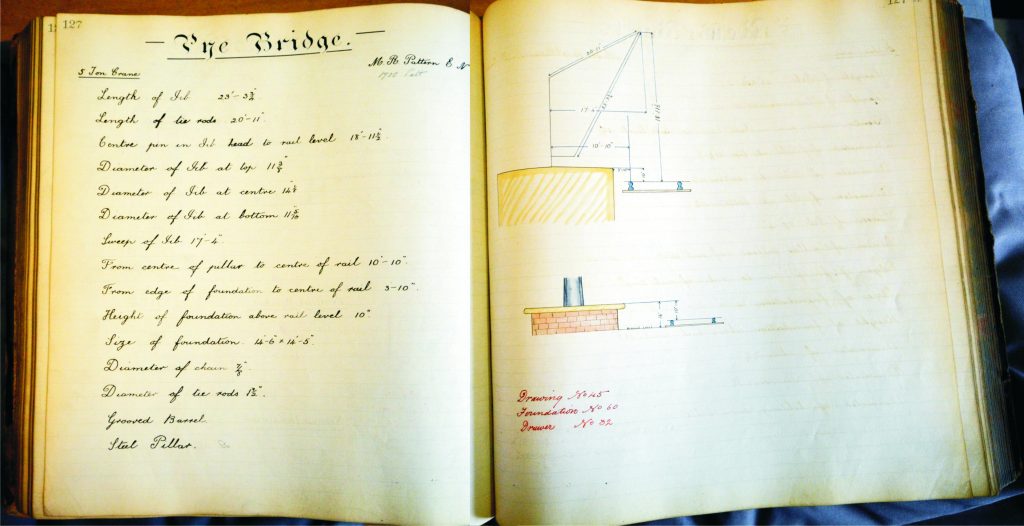 127
Pye Bridge.
M. R. Pattern E N
5 Ton Crane
Length of Jib 23'-3¾"
Length of tie rods 20'-11"
Centre pin in Jib head to rail level 18'-11½"
Diameter of Jib at top 11¾"
Diameter of Jib at centre 14¼"
Diameter of Jib at bottom
Sweep of Jib 17'-4"
From centre of pillar to centre of rail 10'-10"
From edge of foundation to centre of rail 3-10"
Height of foundation above rail level 10"
Size of foundation. 14-6" × 14'-5"
Diameter of chain ⅞"
Diameter of tie rods
Grooved Barrel
Steel Pillar.
127
20'-11"
17'-4"
18'-11½"
10'-10"
Drawing No 45
Foundation No 60
Drawer No 32